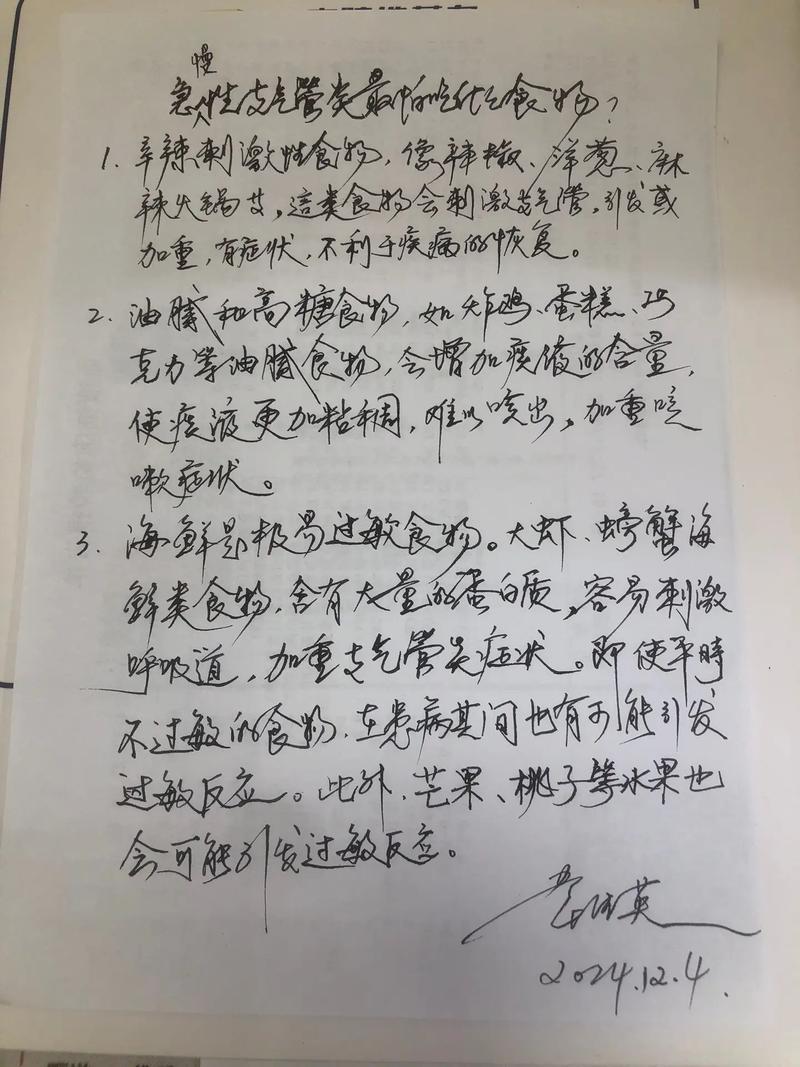 慢
急性支气管炎最怕吃什么食物?
1. 辛辣刺激性食物,像辣椒、洋葱、麻
辣火锅等,这类食物会刺激支气管,引发或
加重,有症状,不利于疾病的恢复。
2. 油腻和高糖食物,如炸鸡、蛋糕、巧
克力等油腻食物,会增加痰液的含量,
使痰液更加粘稠,难以咳出,加重咳
嗽症状。
3. 海鲜是极易过敏食物。大虾、螃蟹海
鲜类食物,含有大量的蛋白质,容易刺激
呼吸道,加重支气管炎症状。即使平時
不过敏的食物,在患病其间也有可能引发
过敏反应。此外、芒果、桃子等水果也
会可能引发过敏反应。
2024.12.4.